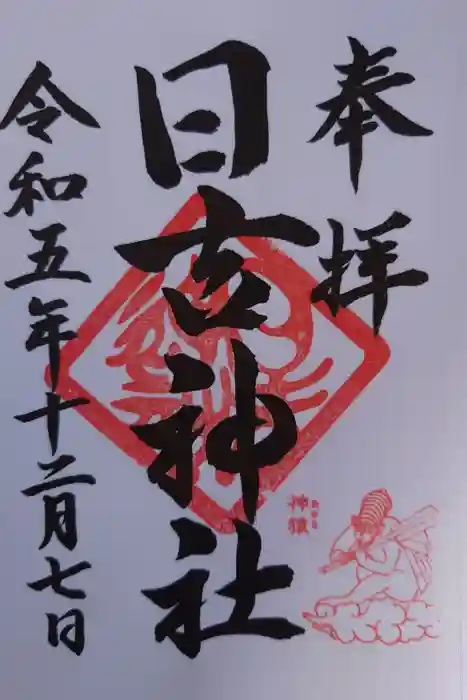 奉拝
日吉神社
令和五年十二月七日
神猿